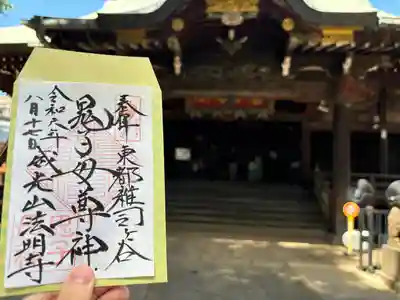 奉拝 東都雑司ヶ谷
鬼子母尊神
令和六年
八月十七日
威光山法明寺